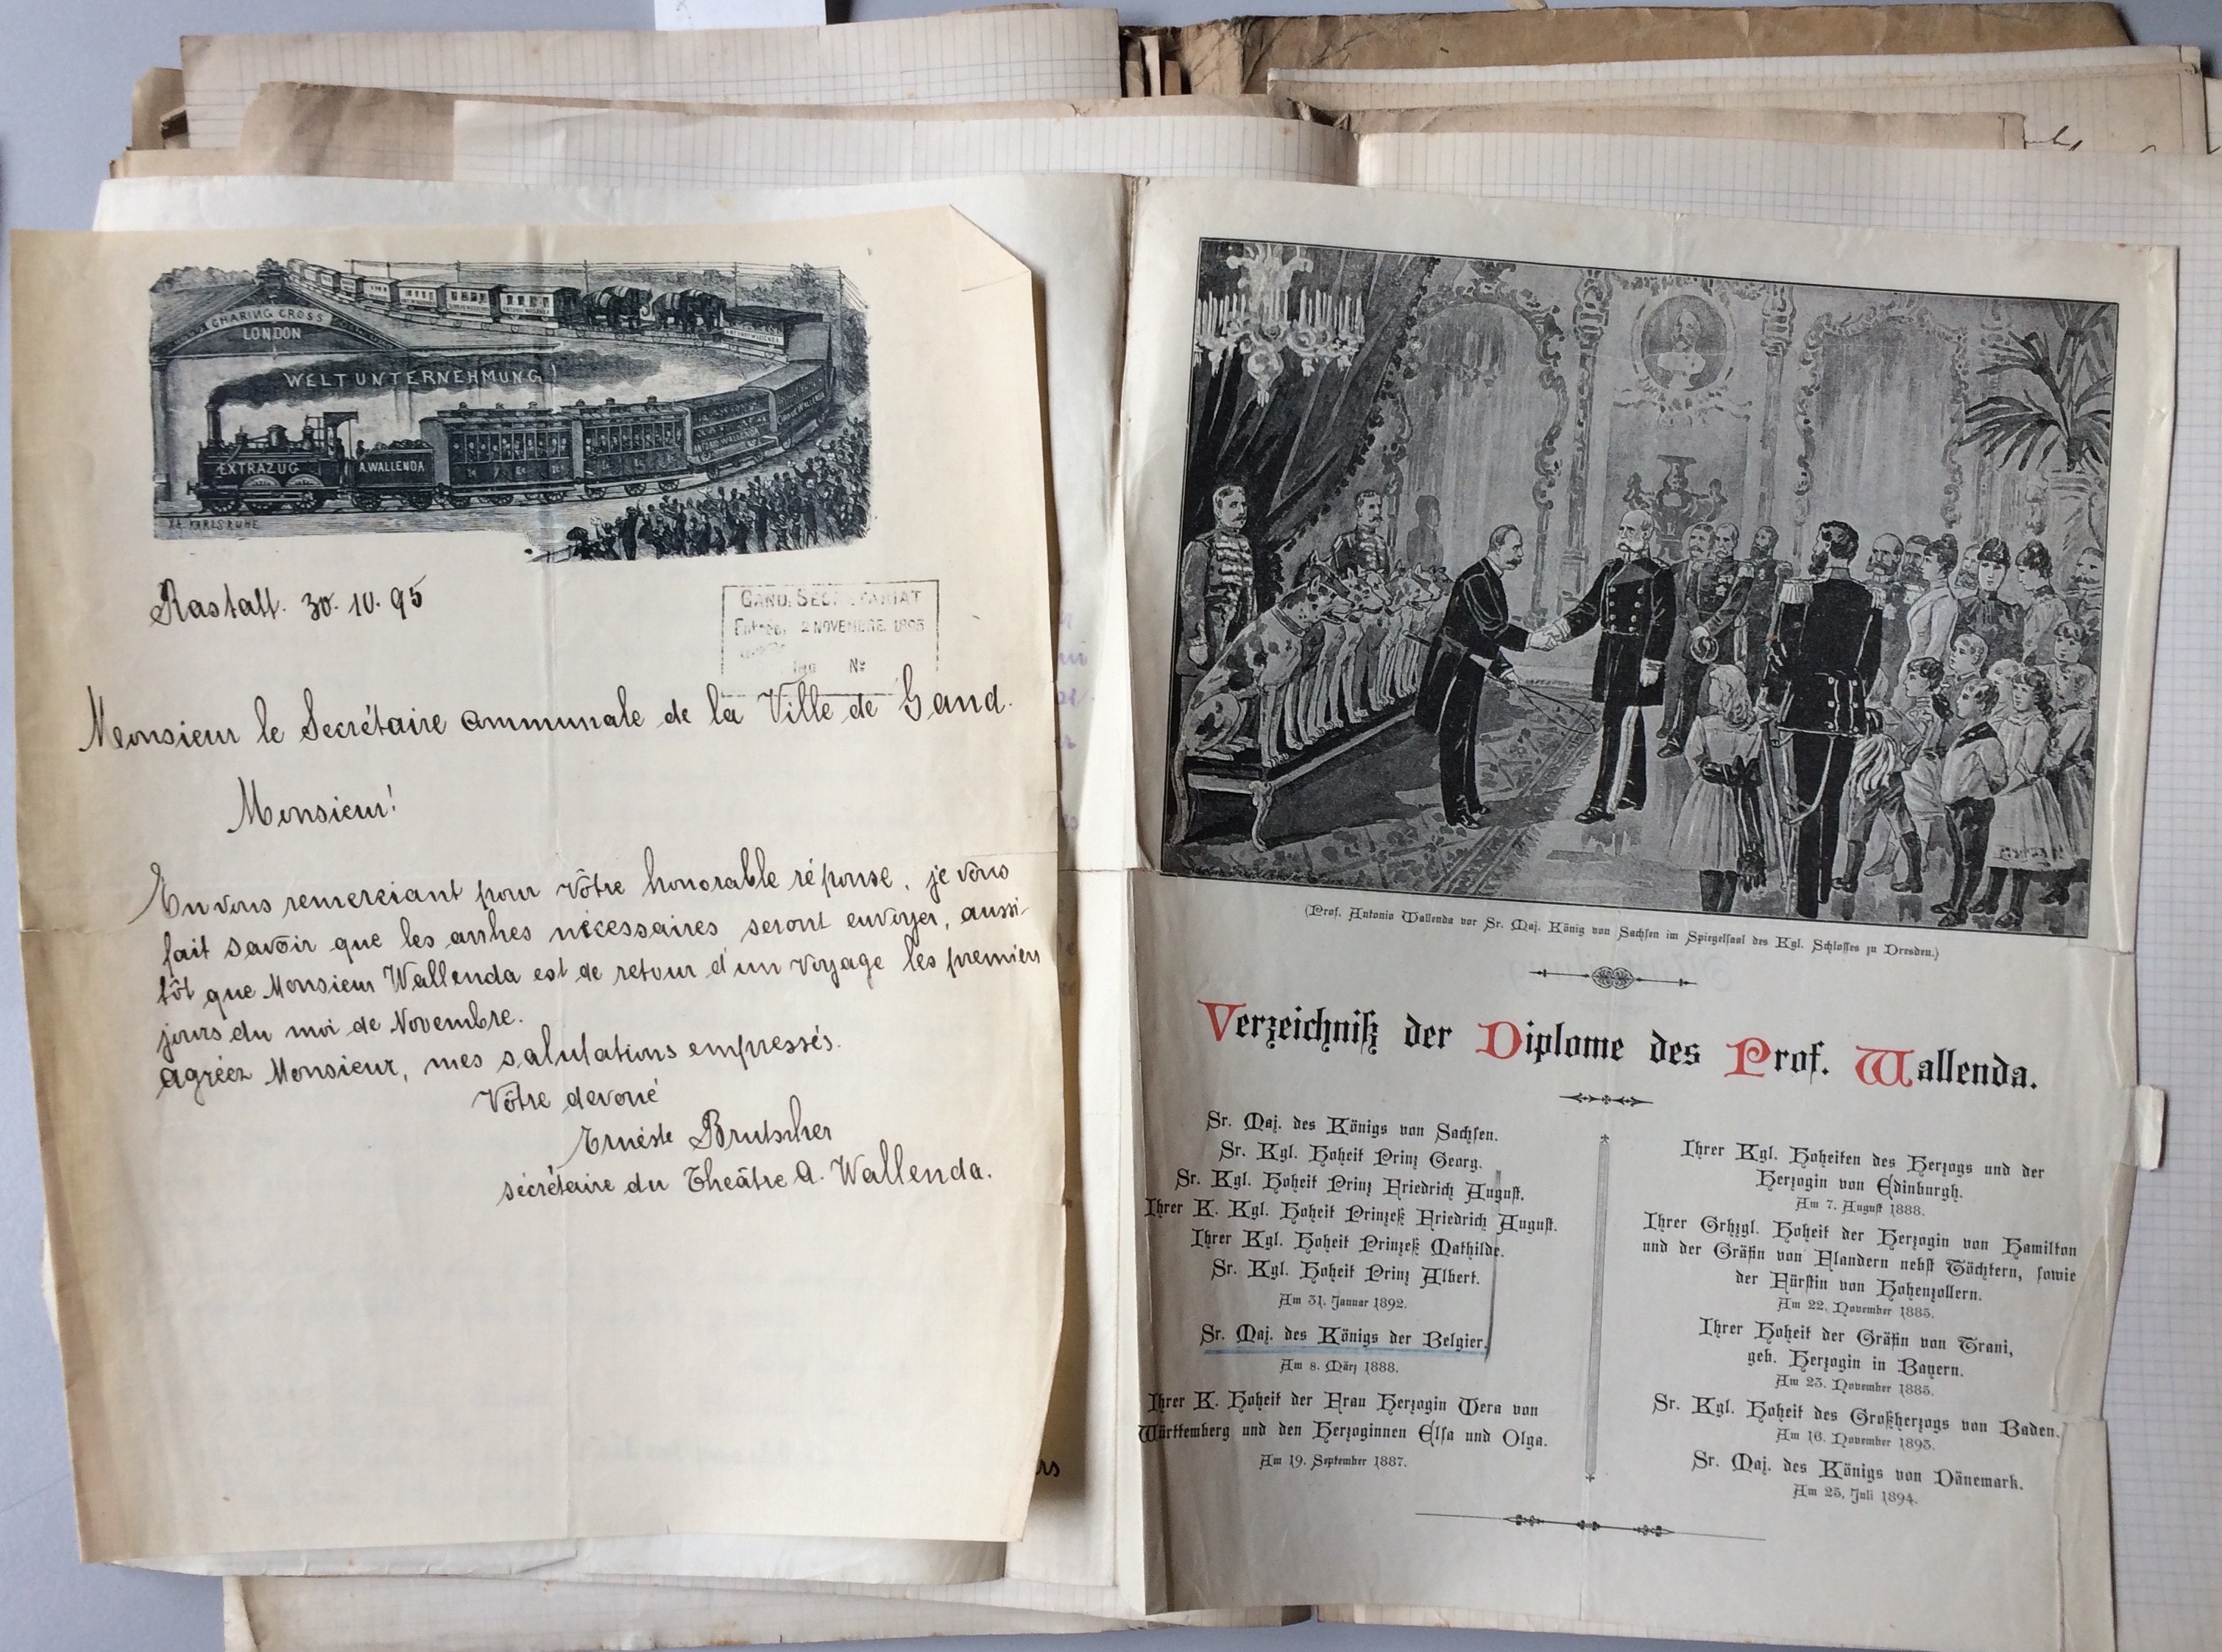 CHARING CROSS
LONDON
WELTUNTERNEHMUNG!
EXTRAZUG
A. WALLENDA
KARLSRUHE
Rastatt. 30. 10. 95
GAND. SECRETARIAT
Entrée. 2 NOVEMBRE. 1895
No
Monsieur le Secrétaire communale de la Ville de Gand.
Monsieur!
En vous remerciant pour vôtre honorable réponse, je vous
fait savoir que les arrhes nécessaires seront envoyer, aussi-
tôt que Monsieur Wallenda est de retour d'un voyage les premiers
jours du moi de Novembre.
agréez Monsieur, mes salutations empressés.
Vôtre devoué
Ernéste Brutscher
sécrétaire du Théâtre A. Wallenda.
(Prof. Antonio Wallenda vor Sr. Maj. König von Sachsen im Spiegelsaal des Kgl. Schlosses zu Dresden.)
Verzeichniß der Diplome des Prof. Wallenda.
Sr. Maj. des Königs von Sachsen.
Sr. Kgl. Hoheit Prinz Georg.
Sr. Kgl. Hoheit Prinz Friedrich August.
Ihrer K. Kgl. Hoheit Prinzeß Friedrich August.
Ihrer Kgl. Hoheit Prinzeß Mathilde.
Sr. Kgl. Hoheit Prinz Albert.
Am 31. Januar 1892.
Sr. Maj. des Königs der Belgier.
Am 8. März 1888.
Ihrer K. Hoheit der Frau Herzogin Wera von
Württemberg und den Herzoginnen Elsa und Olga.
Am 19. September 1887.
Ihrer Kgl. Hoheiten des Herzogs und der
Herzogin von Edinburgh.
Am 7. August 1888.
Ihrer Grhzgl. Hoheit der Herzogin von Hamilton
und der Gräfin von Flandern nebst Töchtern, sowie
der Fürstin von Hohenzollern.
Am 22. November 1885.
Ihrer Hoheit der Gräfin von Trani,
geb. Herzogin in Bayern.
Am 23. November 1885.
Sr. Kgl. Hoheit des Großherzogs von Baden.
Am 16. November 1893.
Sr. Maj. des Königs von Dänemark.
Am 25. Juli 1894.